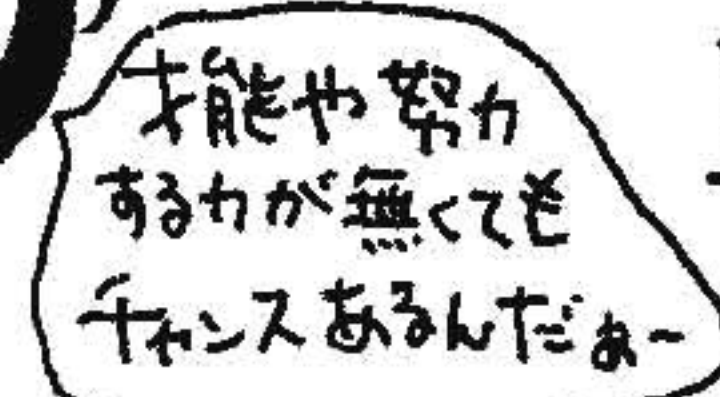 才能や努力
する力が無くても
チャンスあるんだぁ〜